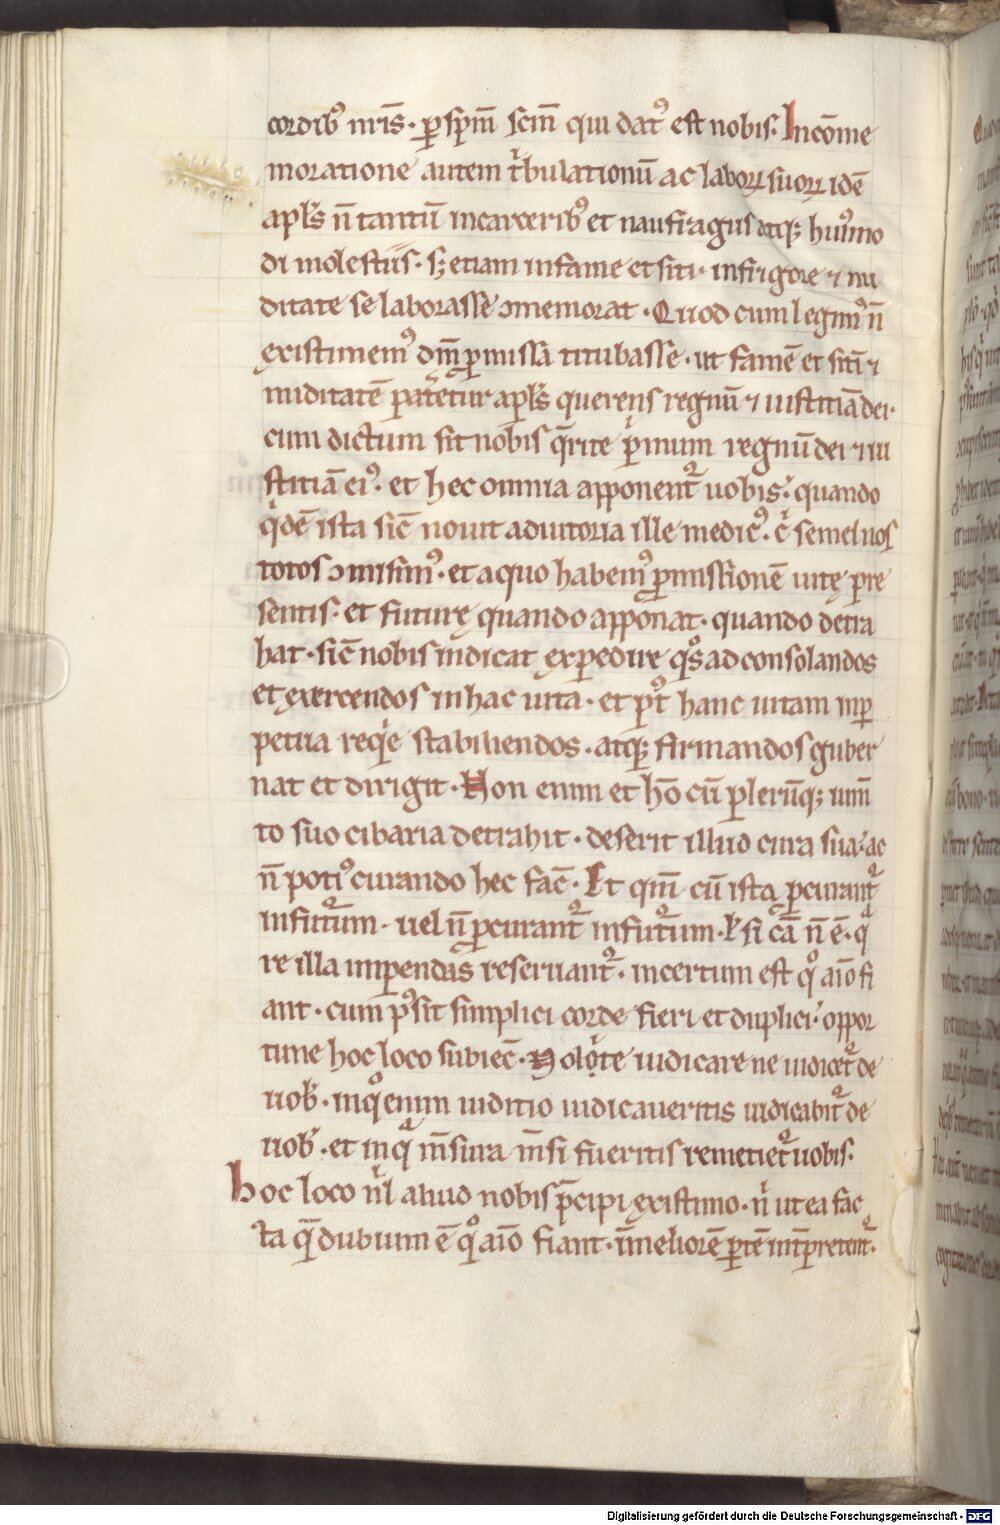 cordib᷒ nr̄is · p̱ sp̄m sc̄m qui dat᷒ est nobis. In cōme
moratione autem t̍bulationū ac laboꝝ suoꝝ idē
apl̄s n̄ tantū in carcerib᷒ et naufragiis atq; hui᷒mo
di molestiis · s; etiam in fame et siti · in frigore ⁊ nu
ditate se laborasse ɔmemorat · Quod cum legim᷒ n̄
existimem᷒ dn̄i p̱missa titubasse · ut famē et sitī ⁊
nuditatē pateretur apl̄s querens regnū ⁊ iustitiā dei ·
cum dictum sit nobis q̄rite p̍mum regnū dei ⁊ iu
stitiā ei᷒ · et hec omnia apponent᷑ uobis · quando
q̍dē ista sic̄ nouit adiutoria ille medic᷒ · c̍ semel nos
totos ɔmisim᷒ · et a quo habem᷒ p̱missionē uitę pre
sentis · et futurę quando apponat · quando detra
hat · sic̄ nobis indicat expedire q̊s ad consolandos
et exercendos in hac uita · et p᷒t hanc uitam in p̱
petua req̍e stabiliendos · atq; firmandos guber
nat et dirigit · Non enim et hō cū plerūq; ium̄
to suo cibaria detrahit · deserit illud cura sua · ac
n̄ poti᷒ curando hec fac̄ · Et qm̄ cū ista p̱curant᷑
in futurum · uel n̄ p̱curant᷑ in futurum · si cā n̄ ē · q
re illa impendas reseruant᷑ · incertum est q̊ aīo fi
ant · cum p̱ sit simplici corde fieri et duplici · oppor
tune hoc loco subiec̄ · Nolite iudicare ne iudicet᷑ de
uob̍ · in q̊ enim iuditio iudicaueritis iudicabit᷑ de
uob̍ · et in q̄ m̄sura m̄si fueritis remetiet᷑ uobis ·
Hoc loco n̍l aliud nobis p̄cipi existimo · n̍ ut ea fac
ta q̄ dubium ē q̊ aīo fiant · in meliorē p̱tē int̄pretent᷑ ·
Digitalisierung gefördert durch die Deutsche Forschungsgemeinschaft - DFG